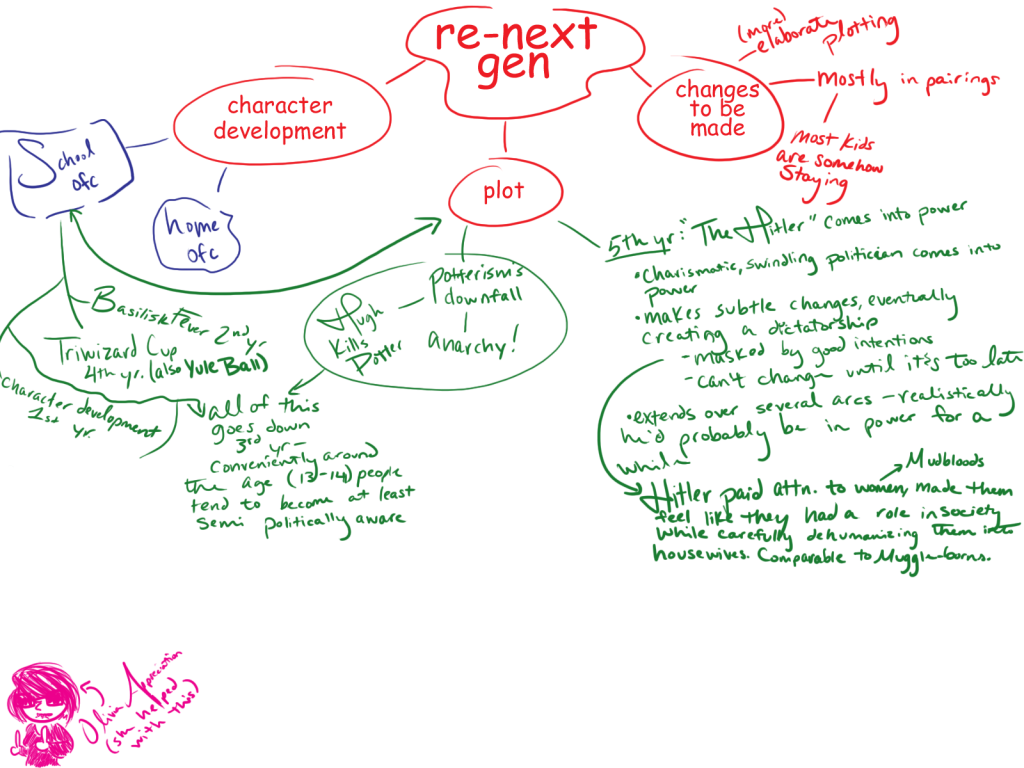 re-next
gen
character
development
changes
to be
made
(more)
elaborate
plotting
mostly in pairings
most kids
are somehow
staying
plot
School
ofc
home
ofc
Basilisk Fever 2nd
yr
Triwizard Cup
4th yr. (also Yule Ball)
character development
1st yr.
Hugh
Kills
Potter
Potterism's
downfall
anarchy!
all of this
goes down
3rd yr—
conveniently around
the age (13-14) people
tend to become at least
semi politically aware
5th yr: "The Hitler" comes into power
•Charismatic, swindling politician comes into
power
•makes subtle changes, eventually
creating a dictatorship
-masked by good intentions
-can't change until it's too late
•extends over several arcs - realistically
he'd probably be in power for a
while
Mudbloods
Hitler paid attn. to women, made them
feel like they had a role in society
while carefully dehumanizing them into
housewives. Comparable to Muggle-borns.
Olivia Appreciation
(she helped
with this)